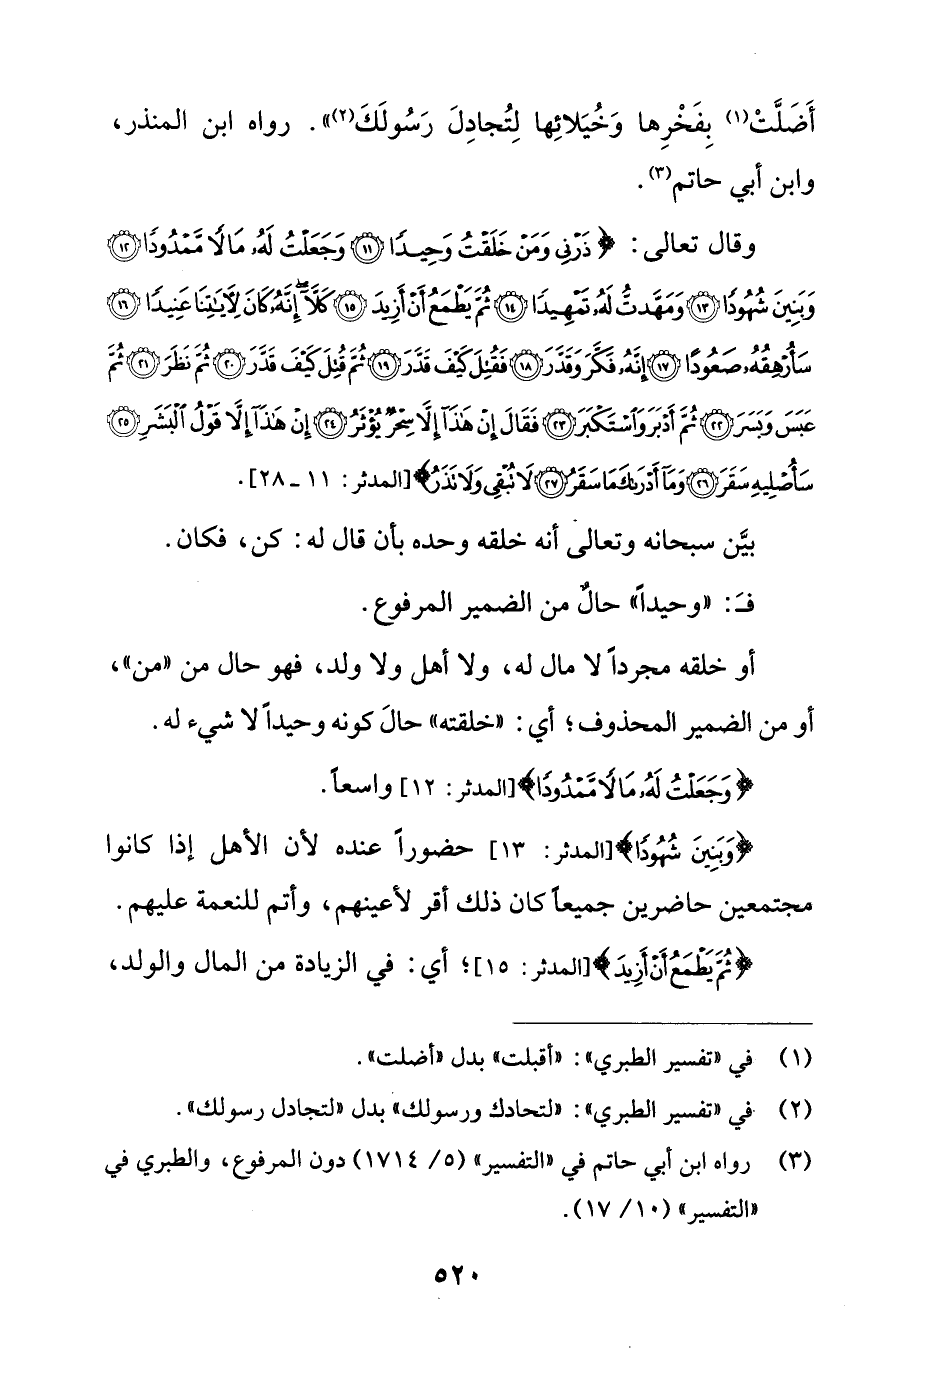 أَضَلَّتْ(١) بِفَخْرِها وَخُيَلائِها لِتُجادِلَ رَسُولَكَ(٢)». رواه ابن المنذر،
وابن أبي حاتم(٣).
وقال تعالى: ﴿ذَرْنِي وَمَنْ خَلَقْتُ وَحِيدًا ۝١١ وَجَعَلْتُ لَهُۥ مَالًا مَّمْدُودًا ۝١٢
وَبَنِينَ شُهُودًا ۝١٣ وَمَهَّدتُّ لَهُۥ تَمْهِيدًا ۝١٤ ثُمَّ يَطْمَعُ أَنْ أَزِيدَ ۝١٥ كَلَّآ ۖ إِنَّهُۥ كَانَ لِآيَٰتِنَا عَنِيدًا ۝١٦
سَأُرْهِقُهُۥ صَعُودًا ۝١٧ إِنَّهُۥ فَكَّرَ وَقَدَّرَ ۝١٨ فَقُتِلَ كَيْفَ قَدَّرَ ۝١٩ ثُمَّ قُتِلَ كَيْفَ قَدَّرَ ۝٢٠ ثُمَّ نَظَرَ ۝٢١ ثُمَّ
عَبَسَ وَبَسَرَ ۝٢٢ ثُمَّ أَدْبَرَ وَٱسْتَكْبَرَ ۝٢٣ فَقَالَ إِنْ هَٰذَآ إِلَّا سِحْرٌ يُؤْثَرُ ۝٢٤ إِنْ هَٰذَآ إِلَّا قَوْلُ ٱلْبَشَرِ ۝٢٥
سَأُصْلِيهِ سَقَرَ ۝٢٦ وَمَآ أَدْرَىٰكَ مَا سَقَرُ ۝٢٧ لَا تُبْقِي وَلَا تَذَرُ﴾ [المدثر: ١١ ـ ٢٨].
بيَّن سبحانه وتعالى أنه خلقه وحده بأن قال له: كن، فكان.
فـَ: «وحيداً» حالٌ من الضمير المرفوع.
أو خلقه مجرداً لا مال له، ولا أهل ولا ولد، فهو حال من «من»،
أو من الضمير المحذوف؛ أي: «خلقته» حالَ كونه وحيداً لا شيء له.
﴿وَجَعَلْتُ لَهُۥ مَالًا مَّمْدُودًا﴾ [المدثر: ١٢] واسعاً.
﴿وَبَنِينَ شُهُودًا﴾ [المدثر: ١٣] حضوراً عنده لأن الأهل إذا كانوا
مجتمعين حاضرين جميعاً كان ذلك أقر لأعينهم، وأتم للنعمة عليهم.
﴿ثُمَّ يَطْمَعُ أَنْ أَزِيدَ﴾ [المدثر: ١٥]؛ أي: في الزيادة من المال والولد،
(١) في «تفسير الطبري»: «أقبلت» بدل «أضلت».
(٢) في «تفسير الطبري»: «لتحادك ورسولك» بدل «لتجادل رسولك».
(٣) رواه ابن أبي حاتم في «التفسير» (٥/ ١٧١٤) دون المرفوع، والطبري في
«التفسير» (١٠/ ١٧).
٥٢٠